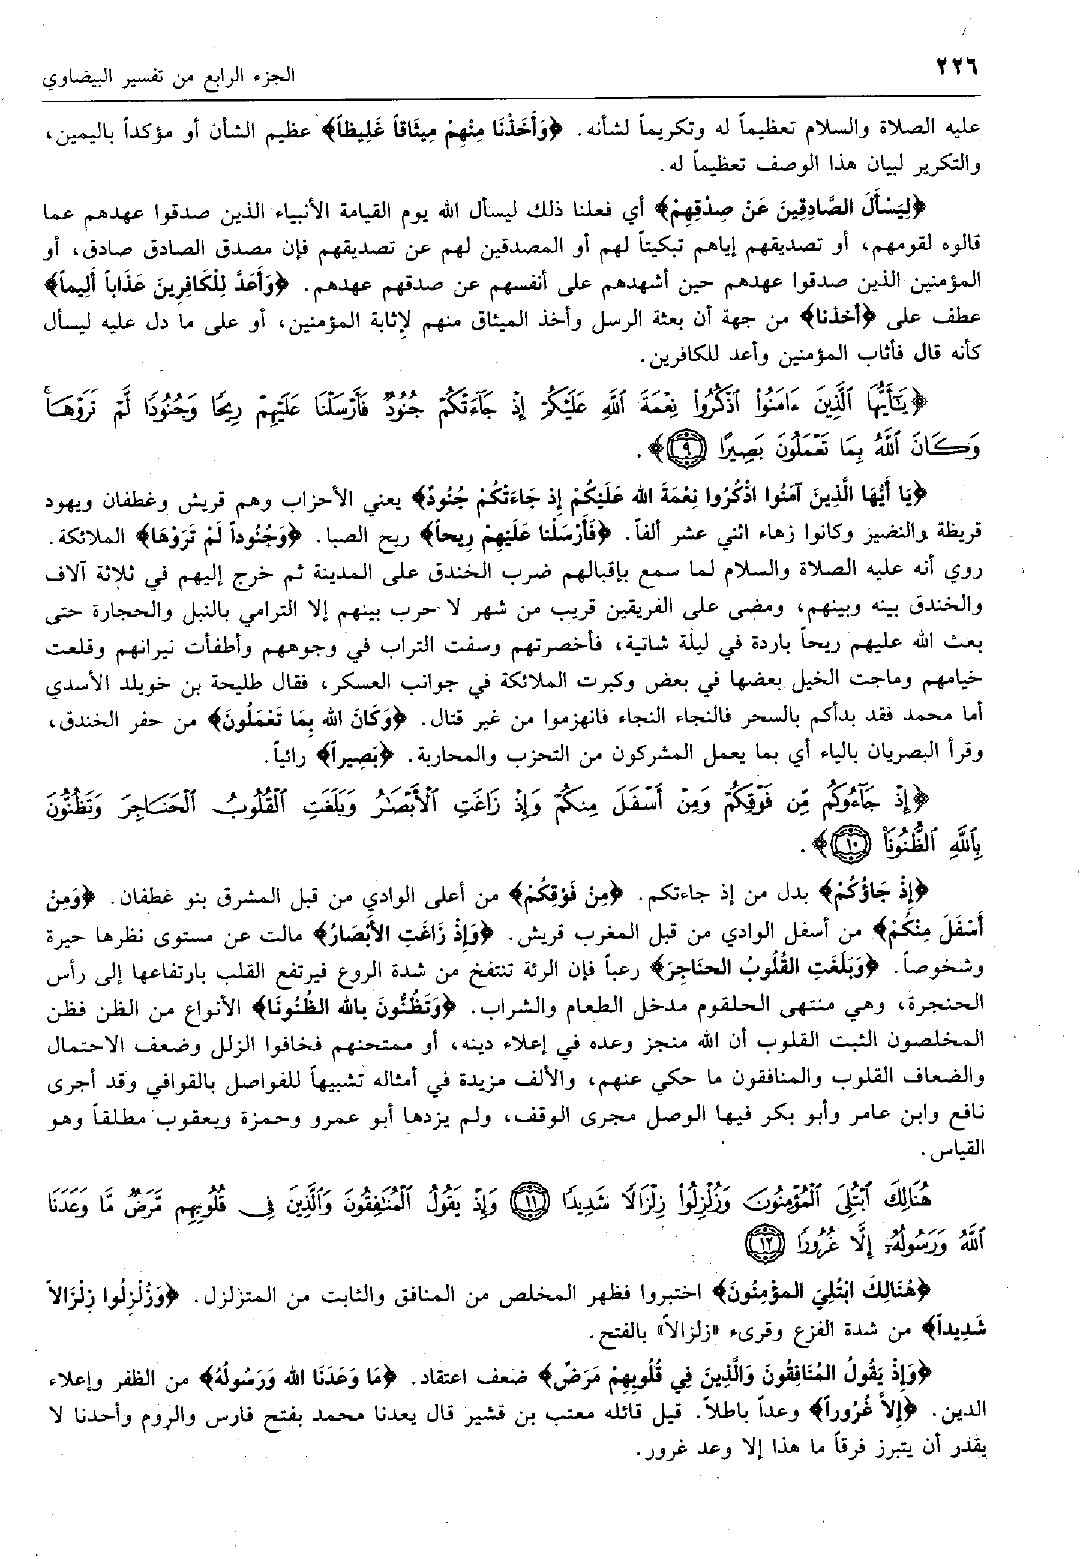 ٢٢٦
الجزء الرابع من تفسير البيضاوي
عليه الصلاة والسلام تعظيماً له وتكريماً لشأنه. ﴿وَأَخَذْنَا مِنْهِمْ مِيثَاقاً غَلِيظاً﴾ عظيم الشأن أو مؤكداً باليمين،
والتكرير لبيان هذا الوصف تعظيماً له.
﴿لِيَسْأَلَ الصَّادِقِينَ عَن صِدْقِهِمْ﴾ أي فعلنا ذلك ليسأل الله يوم القيامة الأنبياء الذين صدقوا عهدهم عما
قالوه لقومهم، أو تصديقهم إياهم تبكيتاً لهم أو المصدقين لهم عن تصديقهم فإن مصدق الصادق صادق، أو
المؤمنين الذين صدقوا عهدهم حين أشهدهم على أنفسهم عن صدقهم عهدهم. ﴿وَأَعَدَّ لِلْكَافِرِينَ عَذَاباً أَلِيماً﴾
عطف على ﴿أخذنا﴾ من جهة أن بعثة الرسل وأخذ الميثاق منهم لإثابة المؤمنين، أو على ما دل عليه ليسأل
كأنه قال فأثاب المؤمنين وأعد للكافرين.
﴿يَٰٓأَيُّهَا ٱلَّذِينَ ءَامَنُوا۟ ٱذْكُرُوا۟ نِعْمَةَ ٱللَّهِ عَلَيْكُمْ إِذْ جَآءَتْكُمْ جُنُودٌ فَأَرْسَلْنَا عَلَيْهِمْ رِيحًا وَجُنُودًا لَّمْ تَرَوْهَا ۚ
وَكَانَ ٱللَّهُ بِمَا تَعْمَلُونَ بَصِيرًا ٩﴾.
﴿يَا أَيُّهَا الَّذِينَ آمَنُوا اذْكُرُوا نِعْمَةَ الله عَلَيْكُمْ إِذ جَاءَتْكُمْ جُنُودٌ﴾ يعني الأحزاب وهم قريش وغطفان ويهود
قريظة والنضير وكانوا زهاء اثني عشر ألفاً. ﴿فَأَرْسَلْنا عَلَيْهِمْ رِيحاً﴾ ريح الصبا. ﴿وَجُنُوداً لَمْ تَرَوْهَا﴾ الملائكة.
روي أنه عليه الصلاة والسلام لما سمع بإقبالهم ضرب الخندق على المدينة ثم خرج إليهم في ثلاثة آلاف
والخندق بينه وبينهم، ومضى على الفريقين قريب من شهر لا حرب بينهم إلا الترامي بالنبل والحجارة حتى
بعث الله عليهم ريحاً باردة في ليلة شاتية، فأخصرتهم وسفت التراب في وجوههم وأطفأت نيرانهم وقلعت
خيامهم وماجت الخيل بعضها في بعض وكبرت الملائكة في جوانب العسكر، فقال طليحة بن خويلد الأسدي
أما محمد فقد بدأكم بالسحر فالنجاء النجاء فانهزموا من غير قتال. ﴿وَكَانَ الله بِمَا تَعْمَلُونَ﴾ من حفر الخندق،
وقرأ البصريان بالياء أي بما يعمل المشركون من التحزب والمحاربة. ﴿بَصِيراً﴾ رائياً.
﴿إِذْ جَآءُوكُم مِّن فَوْقِكُمْ وَمِنْ أَسْفَلَ مِنكُمْ وَإِذْ زَاغَتِ ٱلْأَبْصَٰرُ وَبَلَغَتِ ٱلْقُلُوبُ ٱلْحَنَاجِرَ وَتَظُنُّونَ
بِٱللَّهِ ٱلظُّنُونَا۠ ١٠﴾.
﴿إِذْ جَاؤُكُمْ﴾ بدل من إذ جاءتكم. ﴿مِنْ فَوْقِكُمْ﴾ من أعلى الوادي من قبل المشرق بنو غطفان. ﴿وَمِنْ
أَسْفَلَ مِنْكُمْ﴾ من أسفل الوادي من قبل المغرب قريش. ﴿وَإِذْ زَاغَتِ الأَبْصَارُ﴾ مالت عن مستوى نظرها حيرة
وشخوصاً. ﴿وَبَلَغَتِ القُلُوبُ الحنَاجِرَ﴾ رعباً فإن الرئة تنتفخ من شدة الروع فيرتفع القلب بارتفاعها إلى رأس
الحنجرة، وهي منتهى الحلقوم مدخل الطعام والشراب. ﴿وَتَظُنُّونَ بالله الظُنُونَا﴾ الأنواع من الظن فظن
المخلصون الثبت القلوب أن الله منجز وعده في إعلاء دينه، أو ممتحنهم فخافوا الزلل وضعف الاحتمال
والضعاف القلوب والمنافقون ما حكي عنهم، والألف مزيدة في أمثاله تشبيهاً للفواصل بالقوافي وقد أجرى
نافع وابن عامر وأبو بكر فيها الوصل مجرى الوقف، ولم يزدها أبو عمرو وحمزة ويعقوب مطلقاً وهو
القياس.
هُنَالِكَ ٱبْتُلِيَ ٱلْمُؤْمِنُونَ وَزُلْزِلُوا۟ زِلْزَالًا شَدِيدًا ١١ وَإِذْ يَقُولُ ٱلْمُنَٰفِقُونَ وَٱلَّذِينَ فِى قُلُوبِهِم مَّرَضٌ مَّا وَعَدَنَا
ٱللَّهُ وَرَسُولُهُۥٓ إِلَّا غُرُورًا ١٢
﴿هُنَالِكَ ابْتُلِيَ المؤْمِنُونَ﴾ اختبروا فظهر المخلص من المنافق والثابت من المتزلزل. ﴿وَزُلْزِلُوا زِلْزَالاً
شَدِيداً﴾ من شدة الفزع وقرىء «زلزالاً» بالفتح.
﴿وَإِذْ يَقُولُ المُنَافِقُونَ وَالَّذِينَ فِي قُلُوبِهِمْ مَرَضٌ﴾ ضعف اعتقاد. ﴿مَا وَعَدَنَا الله وَرَسُولُهُ﴾ من الظفر وإعلاء
الدين. ﴿إِلاَّ غُرُوراً﴾ وعداً باطلاً. قيل قائله معتب بن قشير قال يعدنا محمد بفتح فارس والروم وأحدنا لا
يقدر أن يتبرز فرقاً ما هذا إلا وعد غرور.